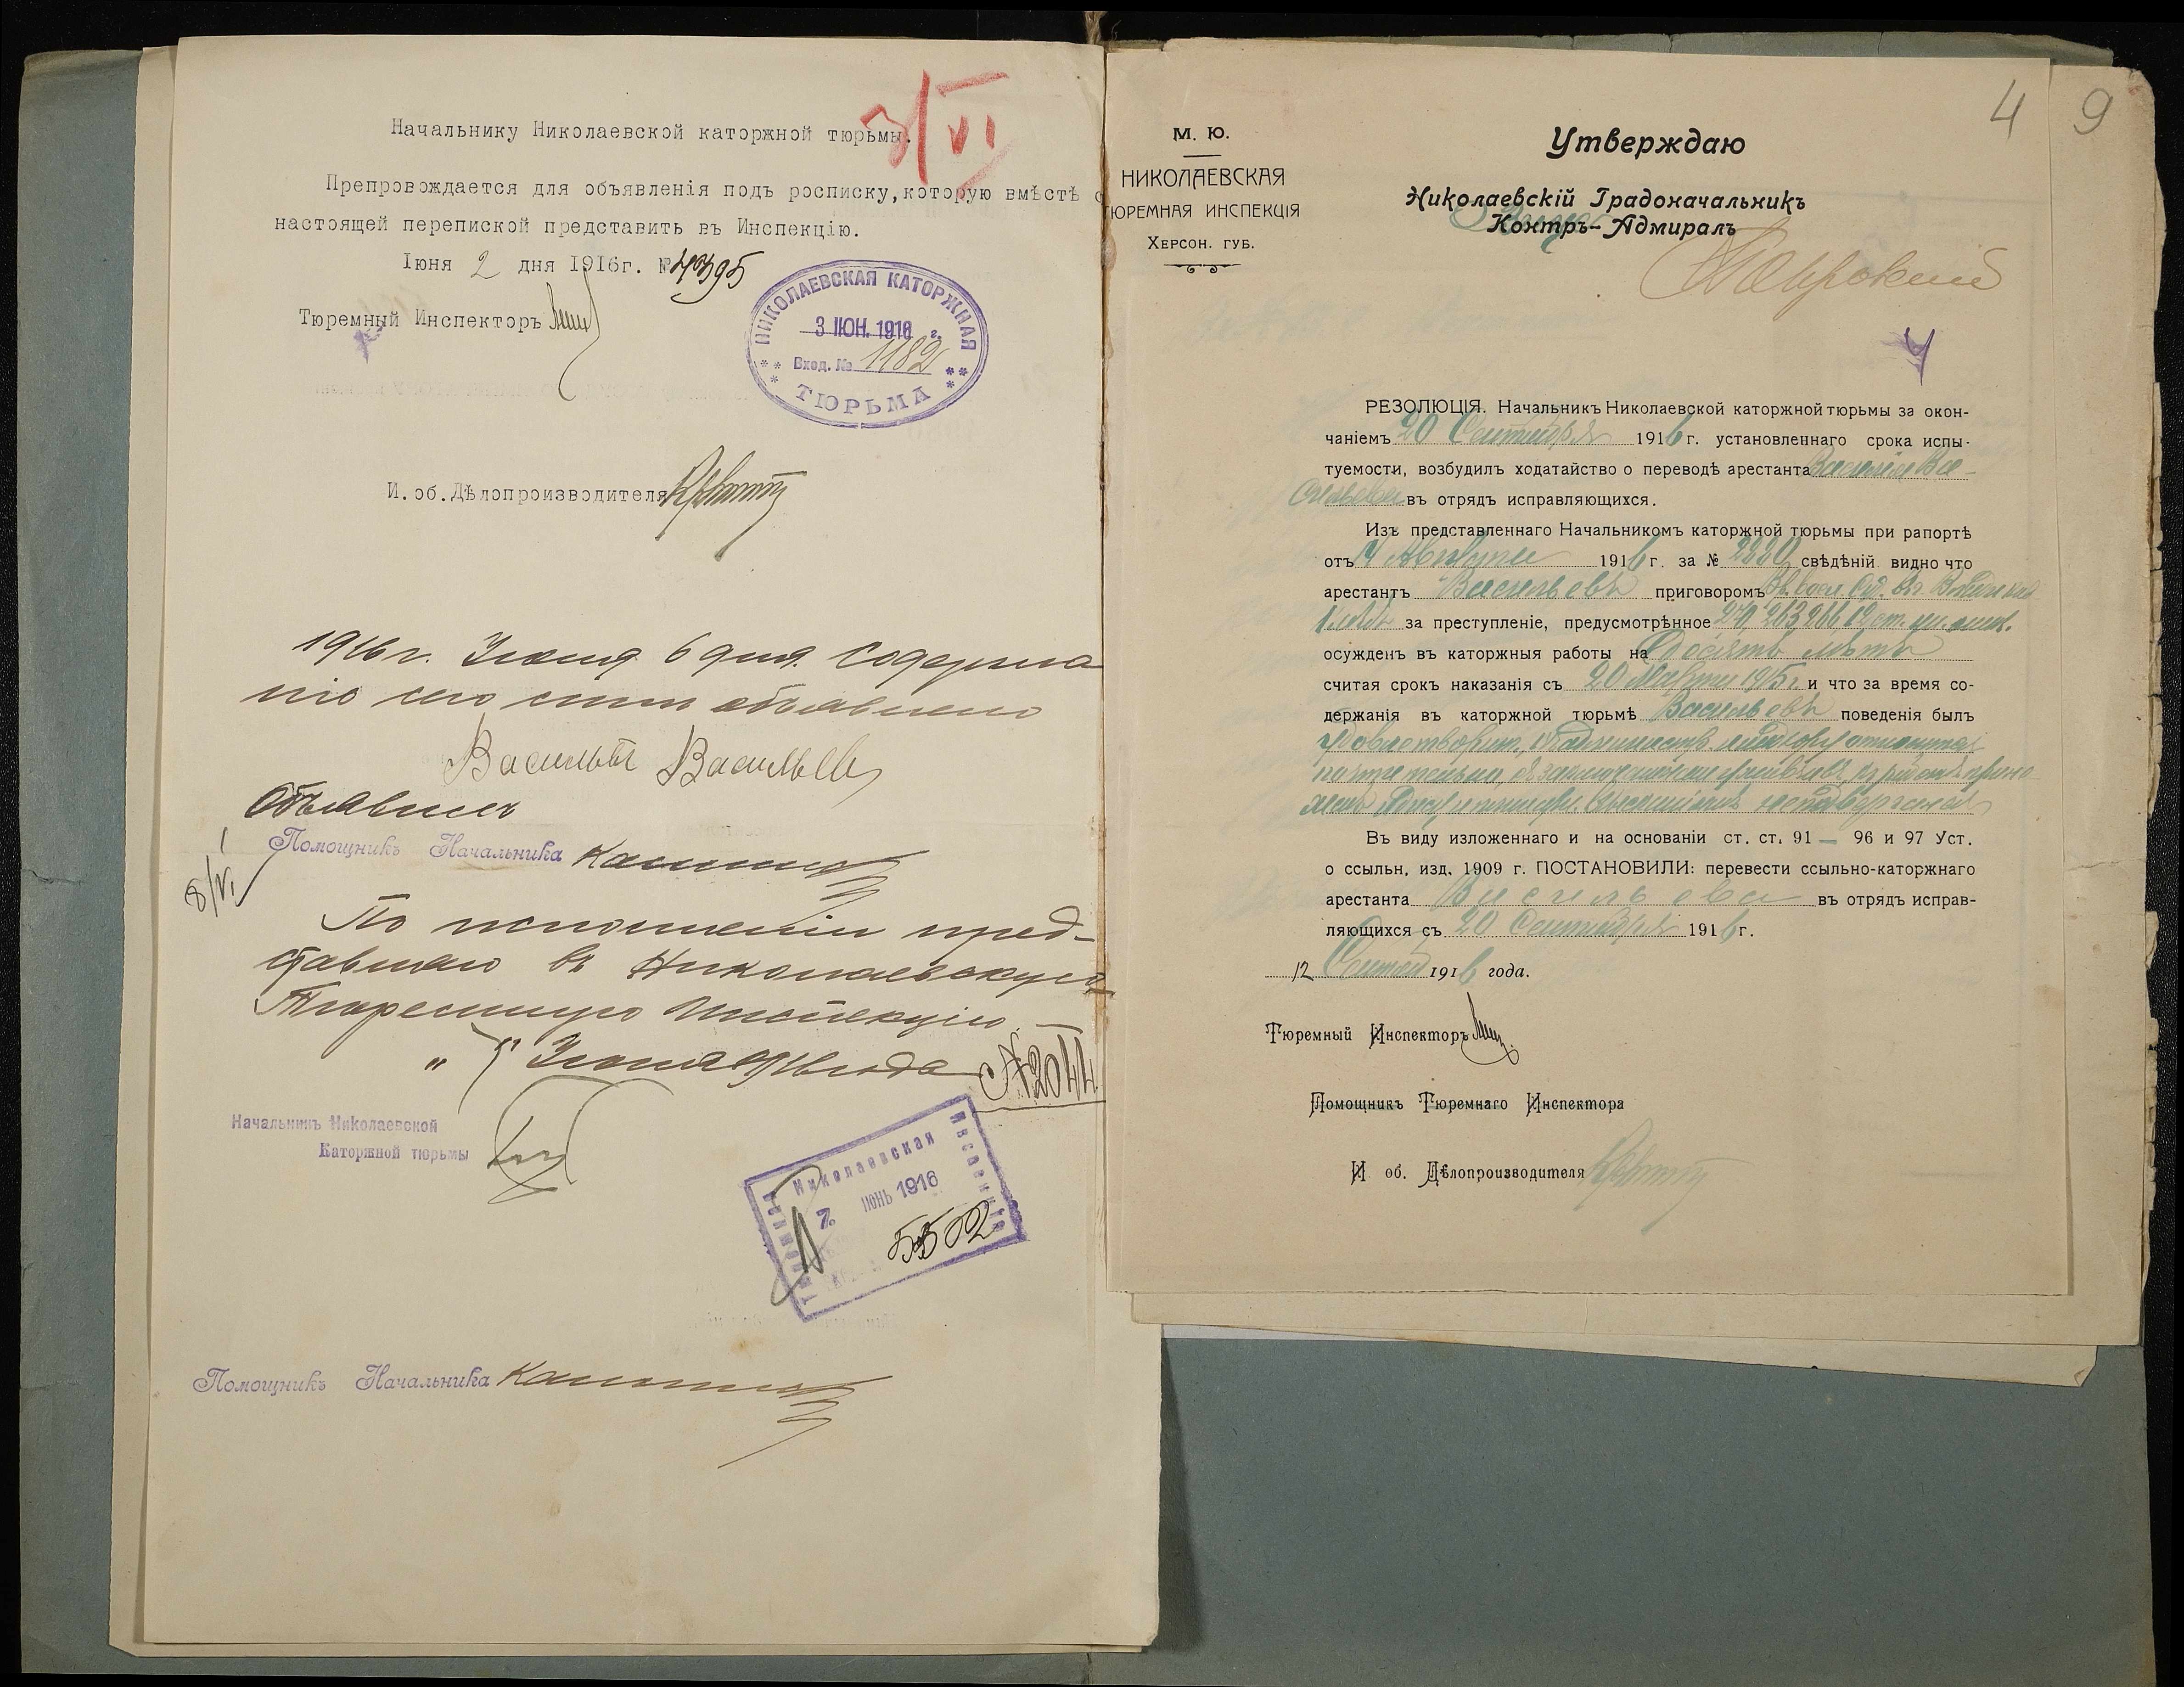 3/VI
Начальнику Николаевской каторжной тюрьмы.
Препровождается для объявленія подъ росписку, которую вмѣстѣ с
настоящей перепиской представить въ Инспекцію.
Іюня 2 дня 1916г. № 4395
Тюремный Инспекторъ
НИКОЛАЕВСКАЯ КАТОРЖНАЯ
3 ІЮН. 1916 г.
Вход. № 1182
ТЮРЬМА
И. об. Дѣлопроизводителя
1916 г. Іюня 6 дня. Содержа
ніе сего мнѣ объявлено
Василий Васильев
Объявилъ
Помощникъ Начальника
8/VI
По исполненіи пред-
ставляю въ Николаевскую
Тюремную Инспекцію
" 7 " Іюня 1916 года
№ 2044
Начальникъ Николаевской
Каторжной тюрьмы
Николаевская
Инспекція
7 ІЮНЬ 1916
5502
Помощникъ Начальника
4 9
М. Ю.
НИКОЛАЕВСКАЯ
ТЮРЕМНАЯ ИНСПЕКЦІЯ
ХЕРСОН. ГУБ.
Утверждаю
Николаевскій Градоначальникъ
Контръ-Адмиралъ
4
РЕЗОЛЮЦІЯ. Начальникъ Николаевской каторжной тюрьмы за окон-
чаніемъ 20 Сентября 1916 г. установленнаго срока испы-
туемости, возбудилъ ходатайство о переводѣ арестанта Василія Ва-
сильева въ отрядъ исправляющихся.
Изъ представленнаго Начальникомъ каторжной тюрьмы при рапортѣ
отъ Августа 1916 г. за № 2220 свѣдѣній видно что
арестантъ Васильевъ приговоромъ
за преступленіе, предусмотрѣнное
осужденъ въ каторжныя работы на Десять лѣтъ
считая срокъ наказанія съ 20 Марта 1915 г. и что за время со-
держанія въ каторжной тюрьмѣ Васильевъ поведенія былъ
Въ виду изложеннаго и на основаніи ст. ст. 91 — 96 и 97 Уст.
о ссыльн. изд. 1909 г. ПОСТАНОВИЛИ: перевести ссыльно-каторжнаго
арестанта Васильева въ отрядъ исправ-
ляющихся съ 20 Сентября 1916 г.
12 1916 года.
Тюремный Инспекторъ
Помощникъ Тюремнаго Инспектора
И об. Дѣлопроизводителя